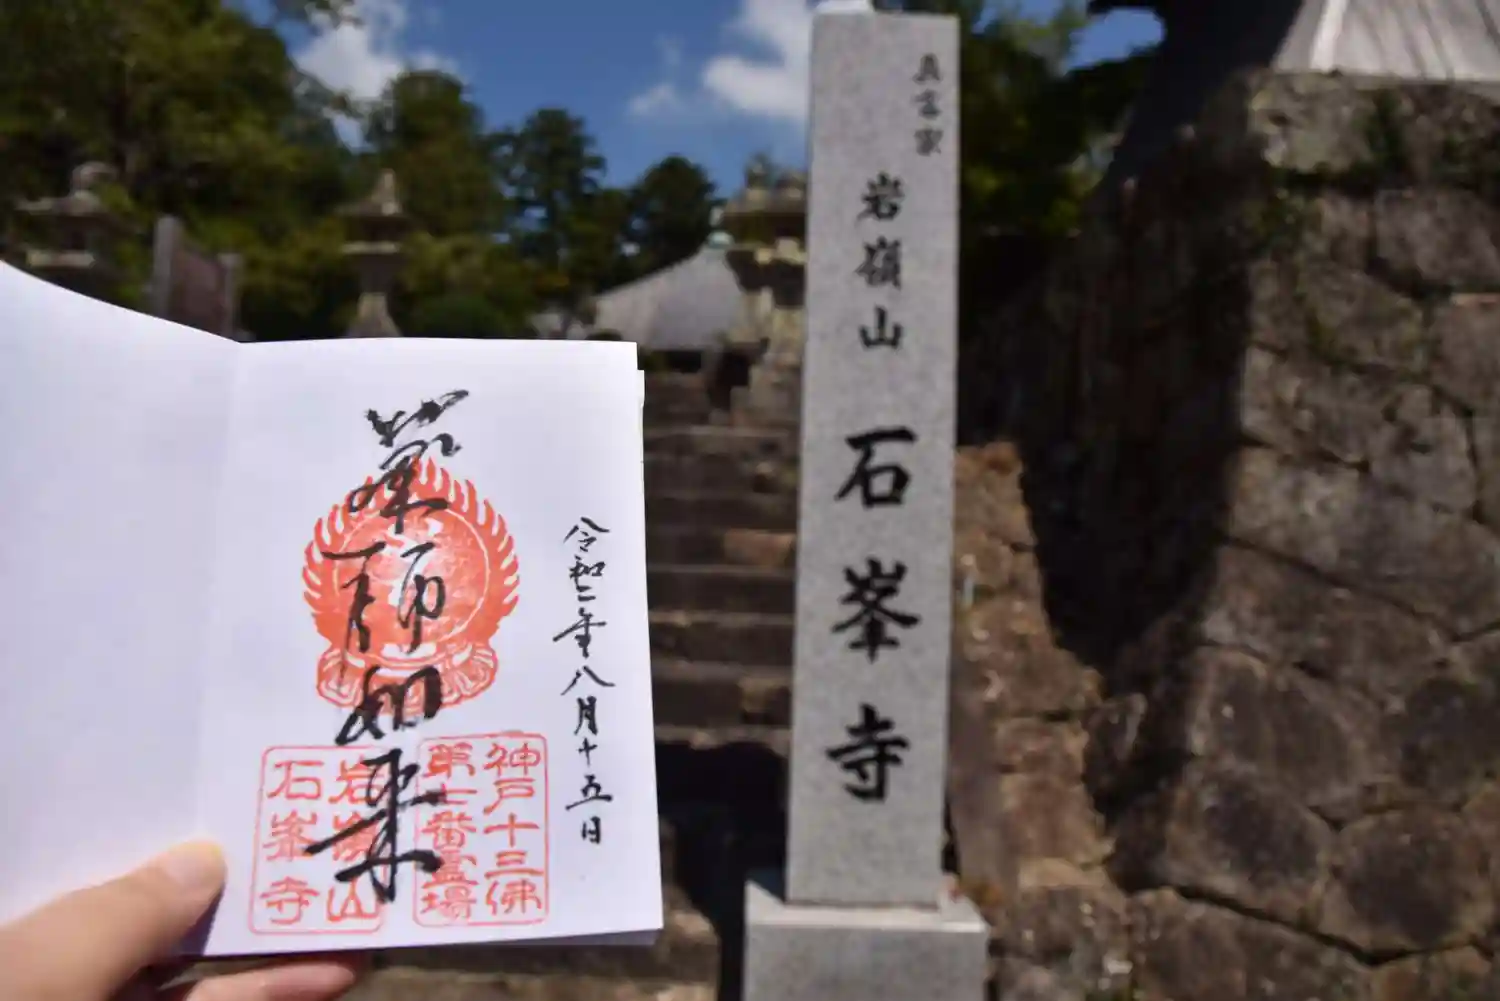 令和二年八月十五日
薬師如来
神戸十三佛
第七番霊場
岩嶺山
石峯寺
真言宗
岩嶺山 石峯寺